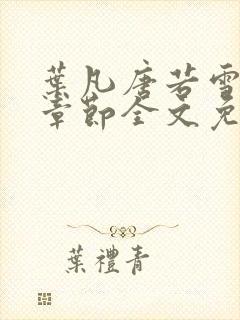 葉凡唐若雪
章節全文免
葉禮青